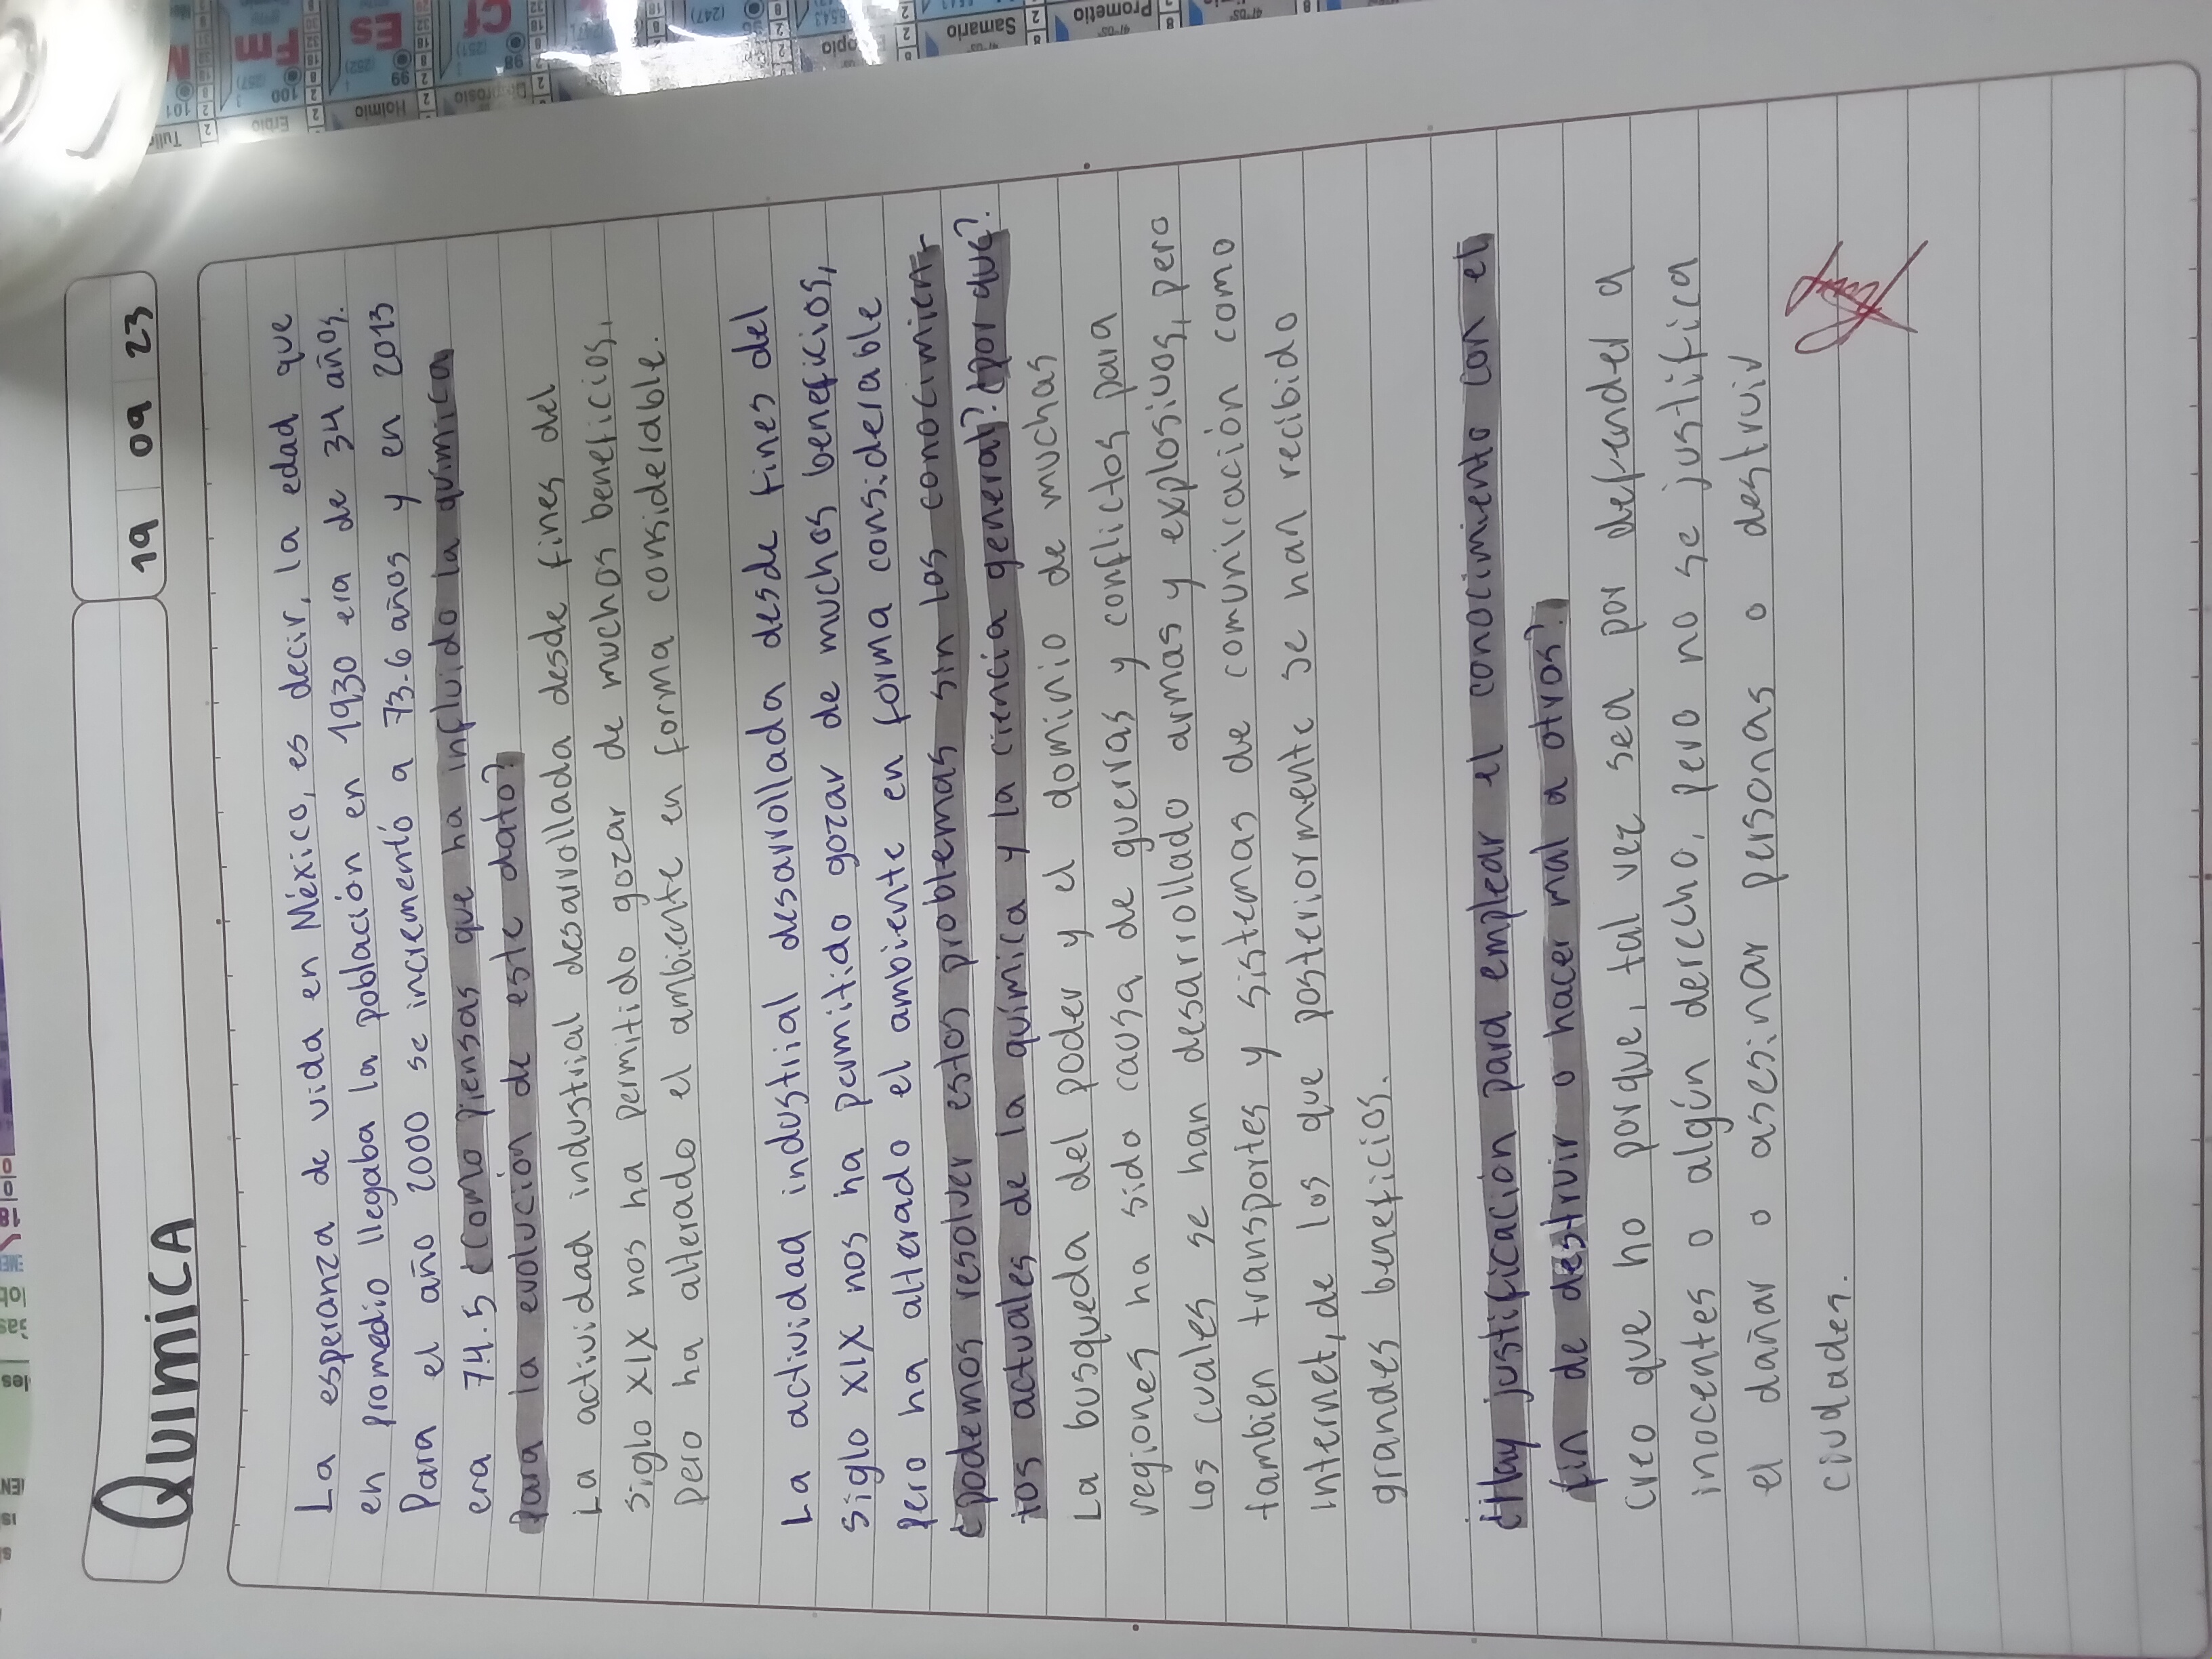 QUIMICA
19 09 23
La esperanza de vida en México, es decir, la edad que
en promedio llegaba la población en 1930 era de 34 años.
Para el año 2000 se incrementó a 73.6 años y en 2013
era 74.5 ¿como piensas que ha influido la química
para la evolución de este dato?
La actividad industrial desarrollada desde fines del
siglo XIX nos ha permitido gozar de muchos beneficios,
pero ha alterado el ambiente en forma considerable.
La actividad industrial desarrollada desde fines del
siglo XIX nos ha permitido gozar de muchos beneficios,
pero ha alterado el ambiente en forma considerable
¿podemos resolver estos problemas sin los conocimien-
tos actuales de la química y la ciencia general? ¿por que?
La busqueda del poder y el dominio de muchas
regiones ha sido causa de guerras y conflictos para
los cuales se han desarrollado armas y explosivos, pero
tambien transportes y sistemas de comunicación como
internet, de los que posteriormente se han recibido
grandes beneficios.
¿Hay justificación para emplear el conocimiento con el
fin de destruir o hacer mal a otros?
Creo que no porque, tal vez sea por defender a
inocentes o algún derecho, pero no se justifica
el dañar o asesinar personas o destruir
ciudades.
Tuli
101
Erbio
100
Fm
(257)
Holmio
99
Es
(252)
98
Cf
(251)
(247)
Samario
Prometio